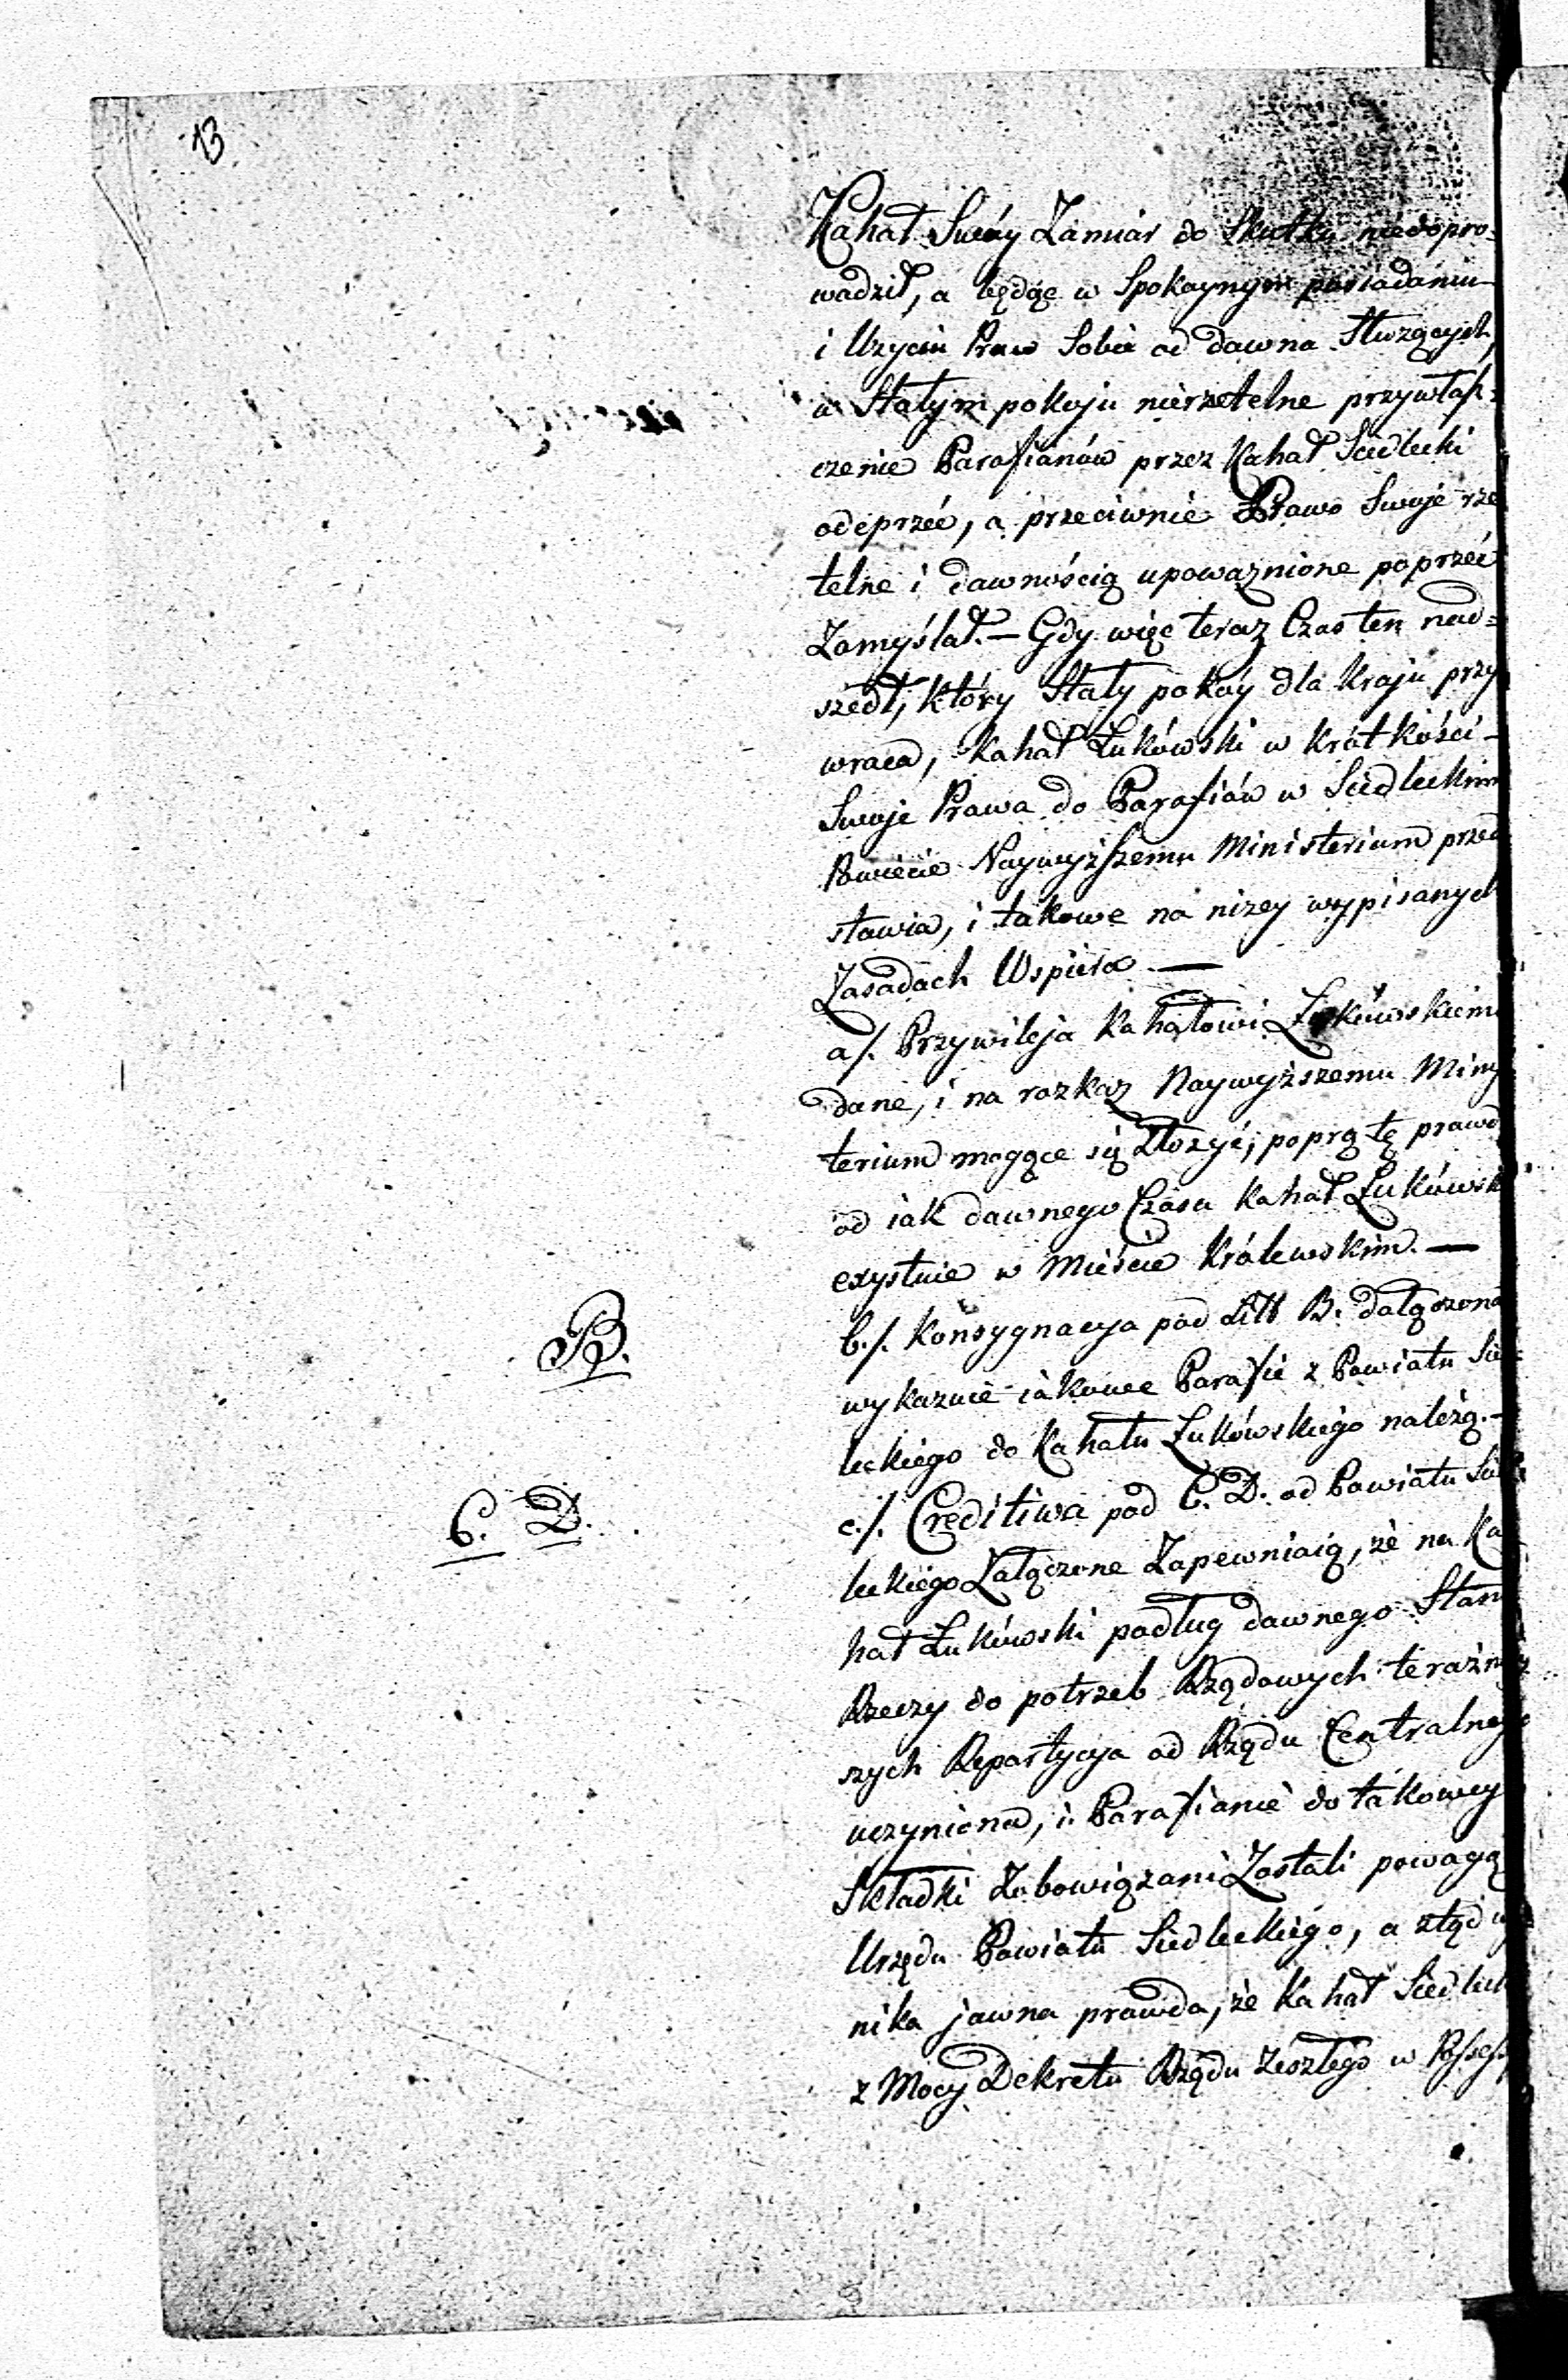 13
Kahał Swóy Zamiar do Skutku niedopro=
wadził, a będąc w Spokaynym posiadaniu
i Uzyciu Praw Sobie od dawna Służących,
w Stałym pokoju nierzetelne przywłasz=
czenie Parafianów przez Kahał Siedlecki
odeprzeć, a przeciwnie Prawo Swoje rze
telne i dawnością upoważnione poprzeć
Zamyślał. — Gdy więc teraz Czas ten nad=
szedł, który Stały pokóy dla Kraju przy
wraca, Kahał Łukówski w krótkości -
Swoje Prawa do Parafiów w Siedleckim
Powiecie Naywyższemu Ministerium przed
stawia, i takowe na niżey wypisanych
Zasadach Wspiera. —
a/. Przywileja Kahałowi Łukówskiemu
dane, i na rozkaz Naywyższemu Miny
terium mogące się złożyć, poprą tę prawd
od iak dawnego Czasu Kahał Łukówsk
exystuie w Mieście Królewskim. —
B. b./. Konsygnacya pod Litt B. dołączona
wykazuie iakowe Parafie z Powiatu Sie
leckiego do Kahału Łukówskiego należą. -
C. D. c./. Creditiwa pod C. D. od Powiatu Sied
leckiego Załączone Zapewniaią, że na Ka
hał Łukówski podług dawnego Stanu
Rzeczy do potrzeb Rządowych teraźniey
szych Repartycya od Rządu Centralnego
uczyniona, i Parafianie do takowey
Składki Zobowiązani Zostali powagą
Urzędu Powiatu Siedleckiego, a ztąd wy
nika jawna prawda, że Kahał Siedleck
z Mocy Dekretu Rządu zeszłego w Possess